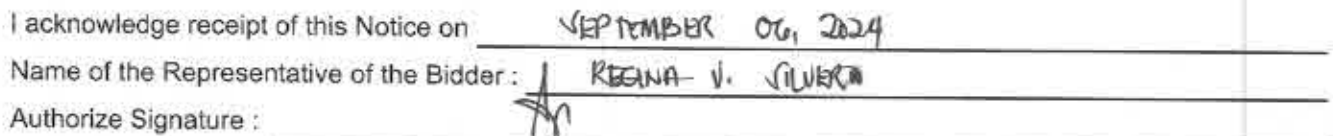 I acknowledge receipt of this Notice on SEPTEMBER 06, 2024
Name of the Representative of the Bidder : REGINA V. SILVERIO
Authorize Signature :